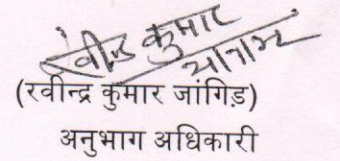 रवीन्द्र कुमार
(रवीन्द्र कुमार जांगिड़)
अनुभाग अधिकारी